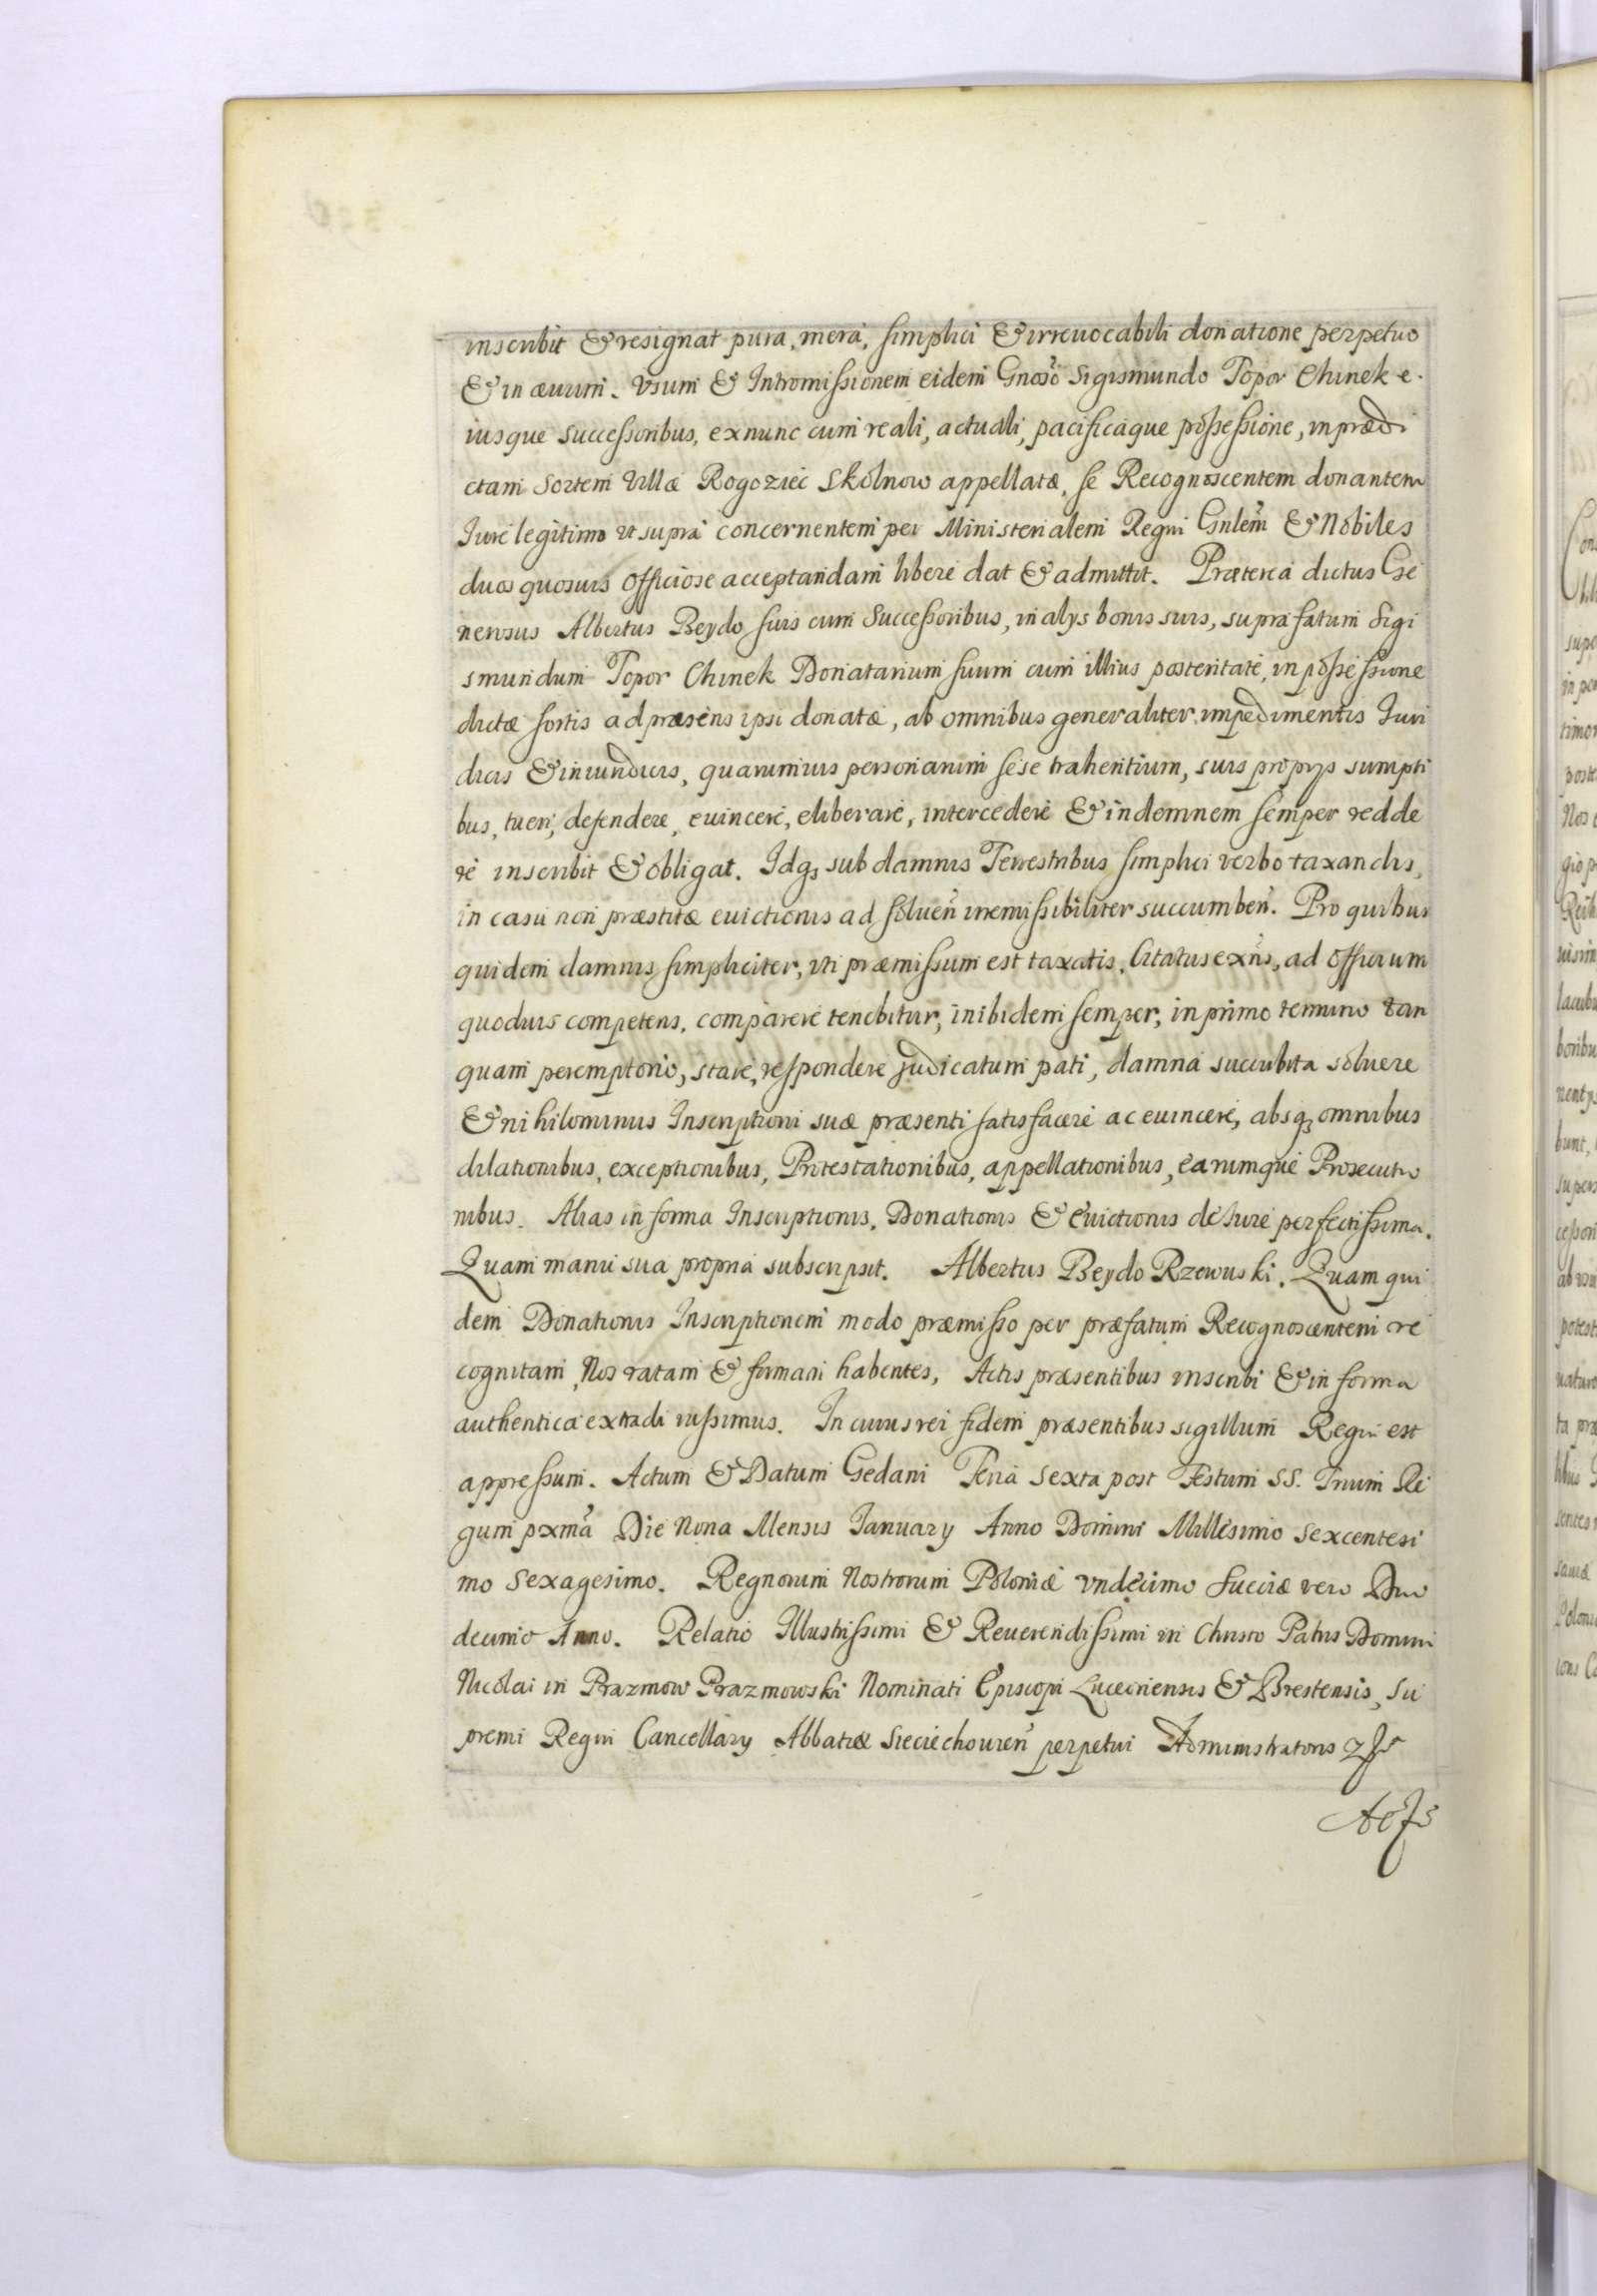 inscribit & resignat pura, mera, simplici & irreuocabili donatione perpetuo
& in æuum. Vsum & Intromissionem eidem Gnoso Sigismundo Topor Chinek e.
iusque successoribus, exnunc cum reali, actuali, pacificaque possessione, in prædi
ctam Sortem Villæ Rogoziec Skolnow appellatæ, se Recognoscentem donantem
Iure legitimo vt supra concernentem per Ministerialem Regni Gnlem & Nobiles
duos quosuis officiose acceptandam libere dat & admittit. Præterea dictus Ge
nerosus Albertus Beydo suis cum Successoribus, in alys bonis suis, suprafatum Sigi
smundum Topor Chinek Donatarium suum cum illius posteritate, in possessione
dictæ sortis ad præsens ipsi donatæ, ab omnibus generaliter impedimentis Iuri
dicis & iniuridicis, quarumuis personarum sese trahentium, suis proprys sumpti
bus, tueri, defendere, euincere, eliberare, intercedere & indemnem semper redde
re inscribit & obligat. Idq3 sub damnis Terrestribus simplici verbo taxandis,
in casu non præstitæ euictionis ad soluen irremissibiliter succumben. Pro quibus
quidem damnis simpliciter, vti præmissum est taxatis. Citatus exns, ad officium
quoduis competens, comparere tenebitur, inibidem semper, in primo termino tan
quam peremptorio, stare, respondere judicatum pati, damna succubita soluere
& nihilominus Inscriptioni suæ præsenti satisfacere ac euincere, absq3 omnibus
dilationibus, exceptionibus, Protestationibus, appellationibus, earumque Prosecutio
nibus. Alias in forma Inscriptionis, Donationis & Euictionis de Iure perfectissima.
Quam manu sua propria subscripsit. Albertus Beydo Rzewuski. Quam qui
dem Donationis Inscriptionem modo præmisso per præfatum Recognoscentem re
cognitam, Nos ratam & firmam habentes, Actis præsentibus inscribi & in forma
authentica extradi iussimus. In cuius rei fidem præsentibus sigillum Regni est
appressum. Actum & Datum Gedani Feria Sexta post Festum SS. Trium Re
gum pxma Die Nona Mensis January Anno Domini Millesimo Sexcentesi
mo Sexagesimo. Regnorum Nostrorum Poloniæ vndecimo Sueciæ vero Duo
decimo Anno. Relatio Illustrissimi & Reuerendissimi in Christo Patris Domini
Nicolai in Prazmow Prazmowski Nominati Episcopi Luceoriensis & Brestensis, Su
premi Regni Cancellary Abbatiæ Sieciechouien perpetui Administratoris